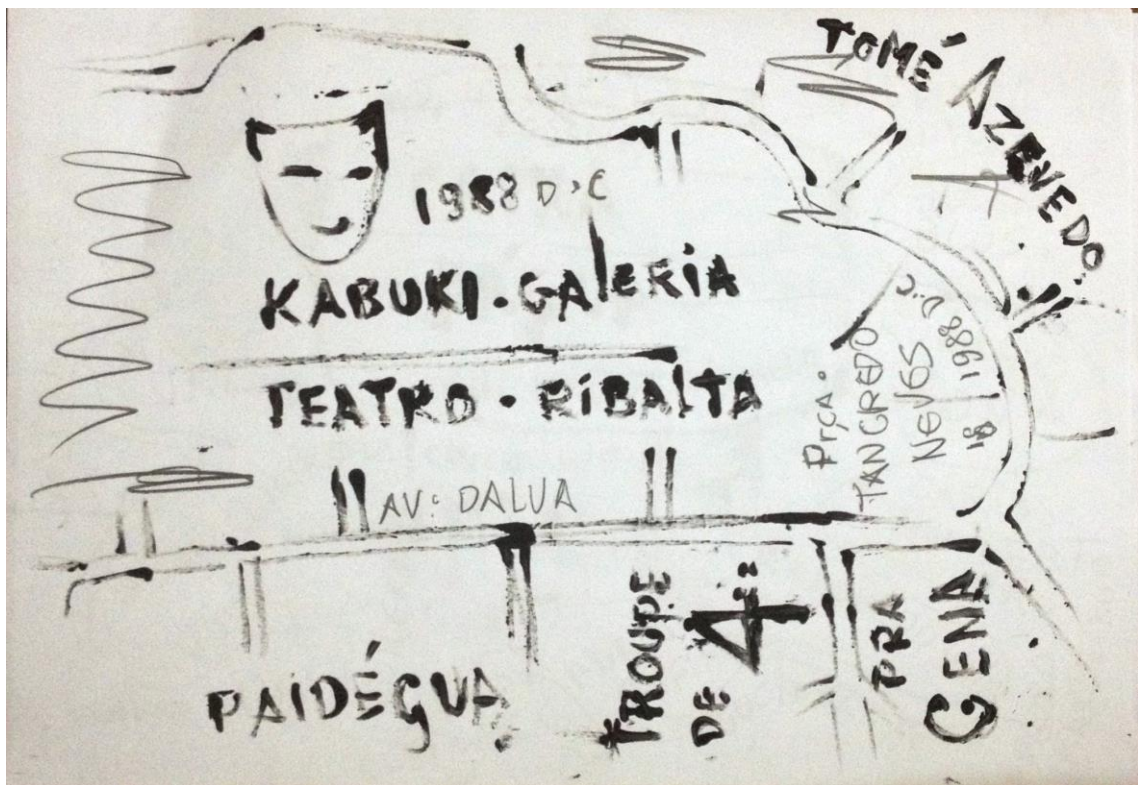 TOMÉ AZEVEDO.
1988 D.C
KABUKI.GAlERIA
TEATRO . RIBAlTA
PrçA.
TANCREDO
NEVES
18/1988 D.C
AV: DALUA
PAIDÉGUA
TROUPE
DE 4
PRA
CENA